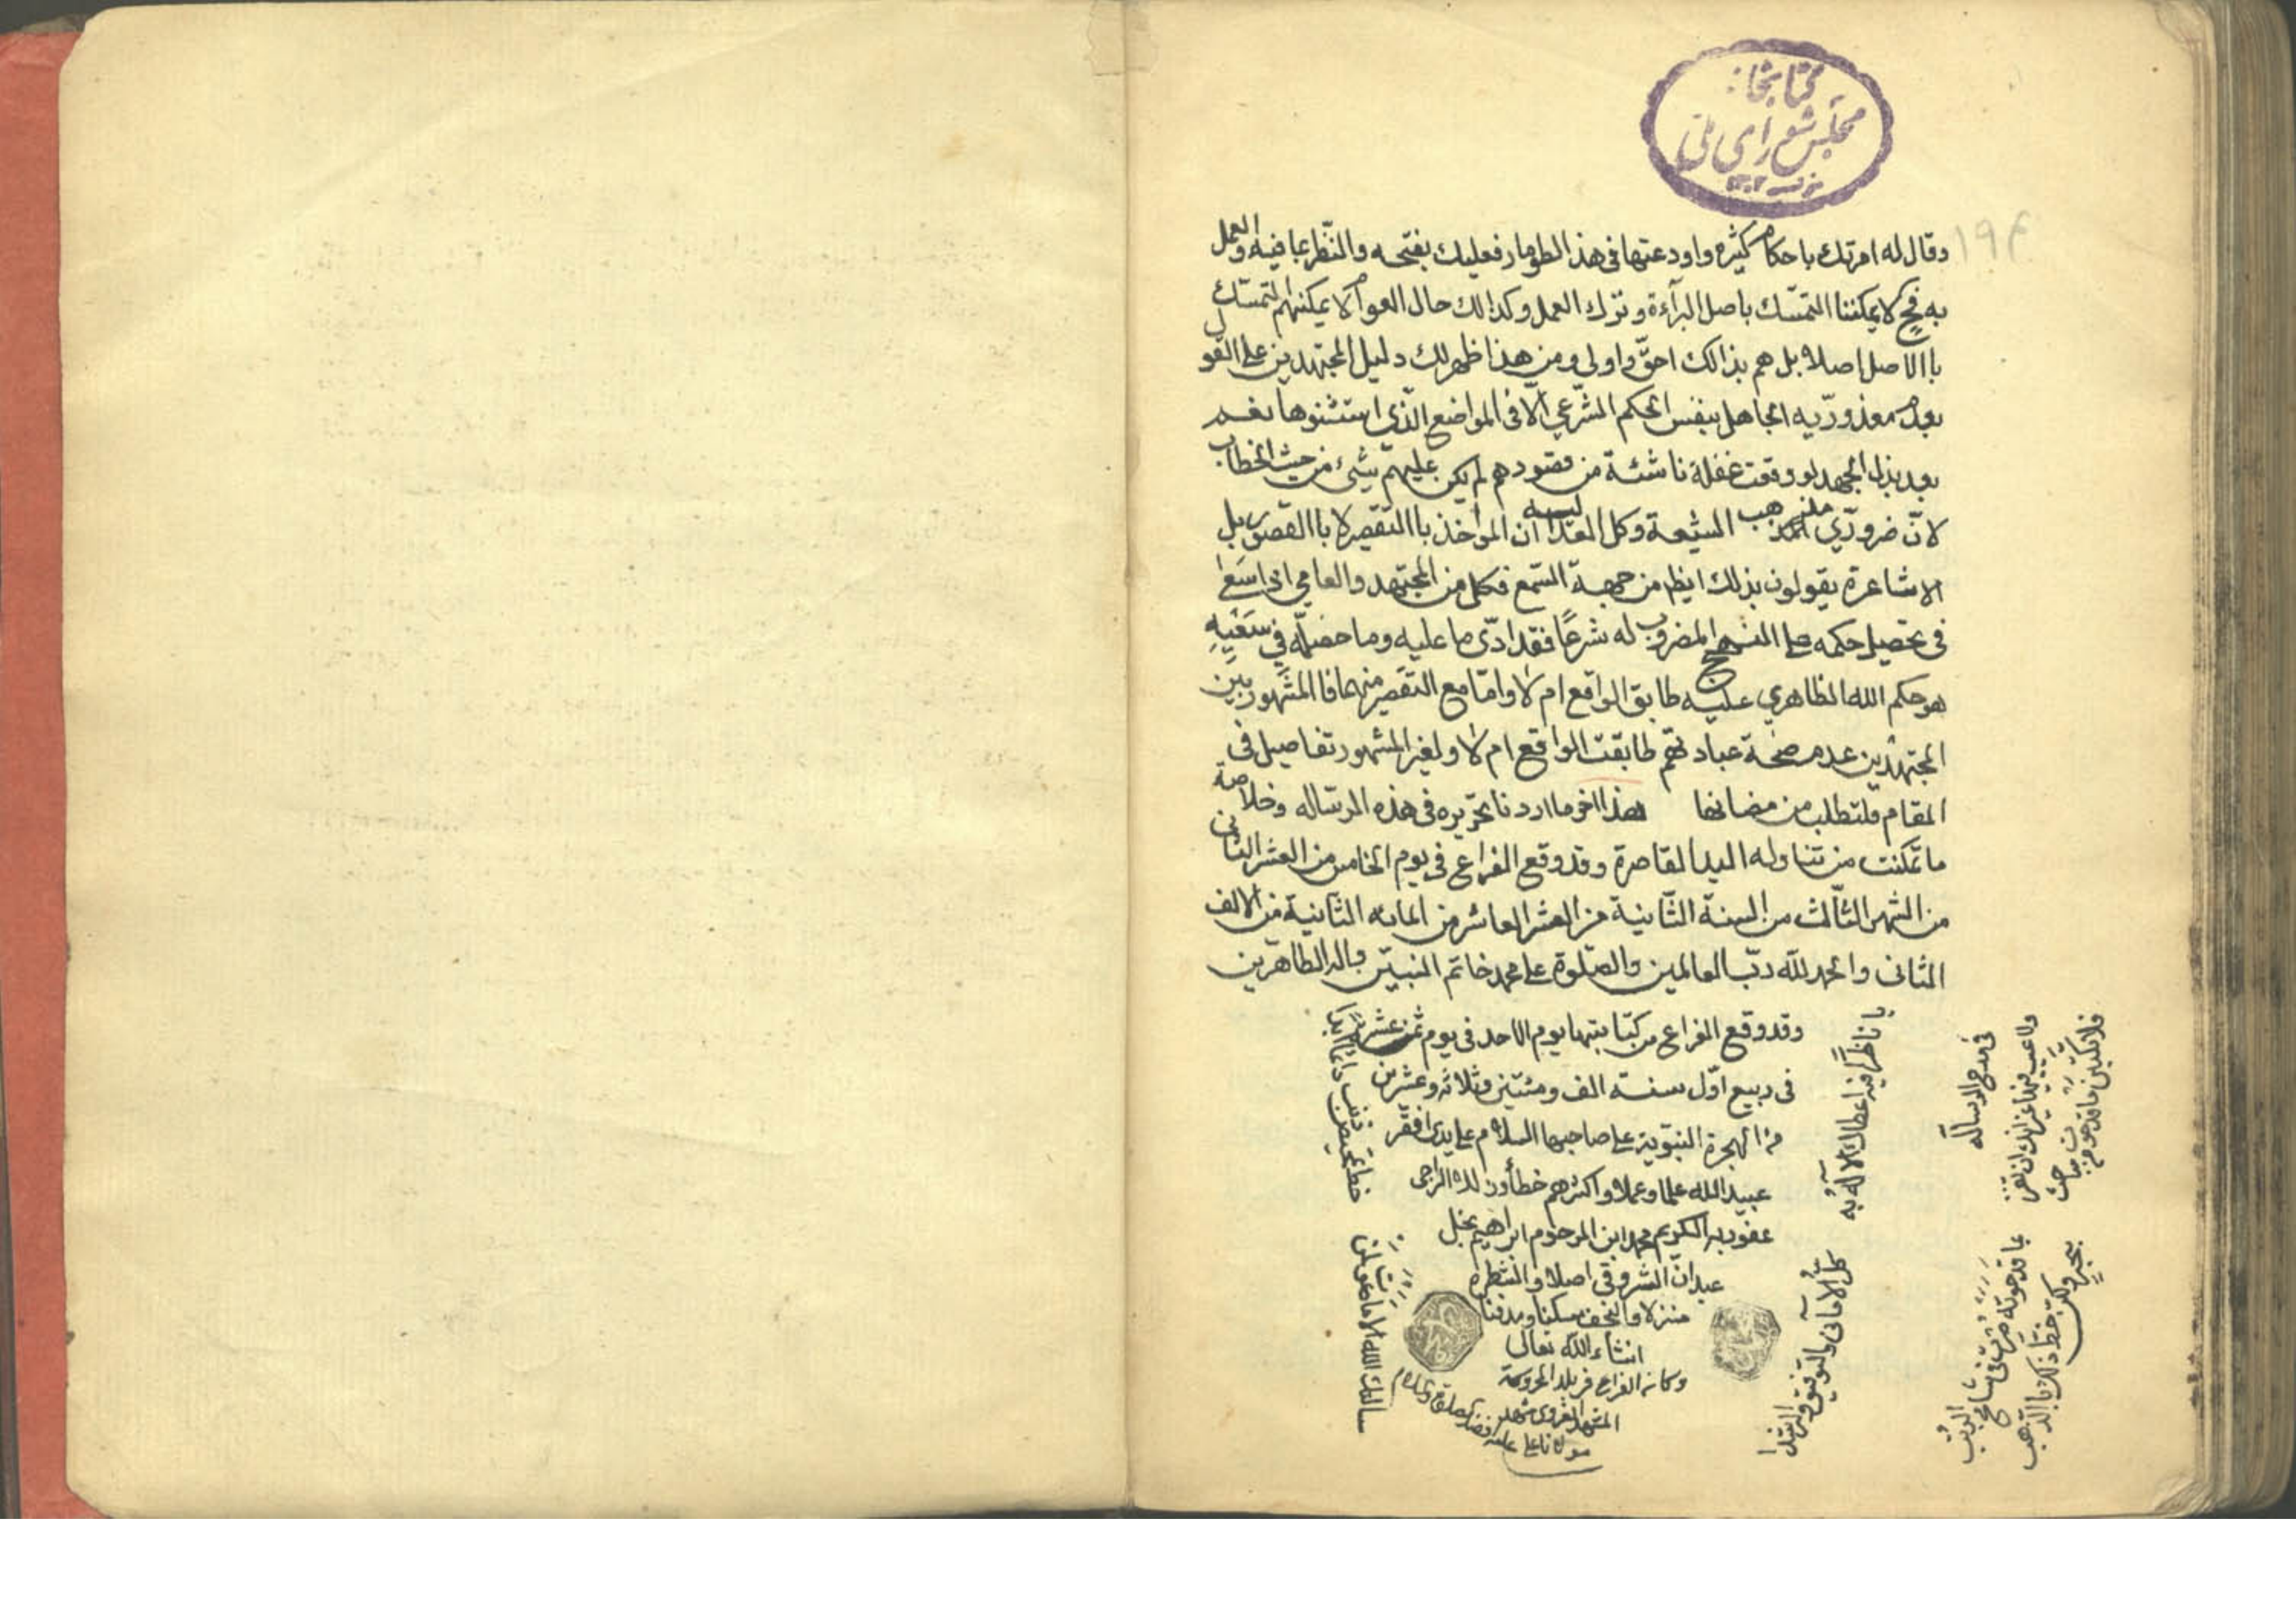 كتابخانه
مجلس شورای ملی
۱۹۴
وقال له امرتك باحكام كثيره واودعتها فى هذا الطومار فعليك بفتحه والنّظر بما فيه والعمل
به فح لا يمكننا التمسّك باصل البرآءة وترك العمل وكذالك حال العوام لا يمكنهم التمسّك
باالاصل اصلا بل هم بذالك احقّ واولى ومن هذا ظهر لك دليل المجتهدين على القول
بعدم معذوريّه الجاهل بنفس الحكم الشّرعي الّا فى المواضع الّذي استثنوها نعم
بعد بذل الجهد لو وقعت غفلة ناشئة من قصورهم لم يكن عليهم شيئ من حيث الخطاب
لانّ ضروريّ مذهب الشيعة وكل العدليه ان المؤاخذ باالتقصير لا باالقصور بل
الاشاعرة يقولون بذلك ايظا من جهة السّمع فكل من المجتهد والعامي اذا سَعٰى
فى تحصيل حكمه على النهج المضروب له شرعًا فقد ادّى ما عليه وما حصّله في سَعْيِهِ
هو حكم الله الظاهري عليه طابق الواقع ام لا وامّا مع التقصير منهما فا المشهور بين
المجتهدين عدم صحّة عبادتهم طابقت الواقع ام لا ولغير المشهور تفاصيل فى
المقام فلتطلب من مضانها هذا اخر ما اردنا تحريره فى هذه الرساله وخلاصة
ما تمكنت من تناوله اليد القاصرة وقد وقع الفراغ فى يوم الخامس من العشر الثانى
من الشهر الثّالث من السنة الثّانية من العشر العاشر من المايه الثّانية من الالف
الثانى والحمد للّه ربّ العالمين والصّلوة على محمد خاتم النبيّين واله الطاهرين
وقد وقع الفراغ من كتابتها يوم الاحد فى يوم ثمن عشر
فى ربيع اوّل سنة الف ومئتين وثلاثه وعشرين
من الهجرة النبّوية على صاحبها السلام على يدى افقر
عبيد الله علما وعملا واكثرهم خطأ وزللا الراجى
عفو ربه الكريم محمد ابن المرحوم ابراهيم نجل
عبدان الشروقى اصلا والشطره
منزلا والنجف مسكنا ومدفنا
انشاء اللّه تعالى
وكان الفراغ فى بلد المحروسة
المشهد الغروى مشهد
مولانا على عليه افضل الصلوة والسلام
يا ناظرًا فيه اعطاك الاله به
كلّ الامانى والتوفيق والرشدا
سالتك اللّه
فى مدح الرسالة